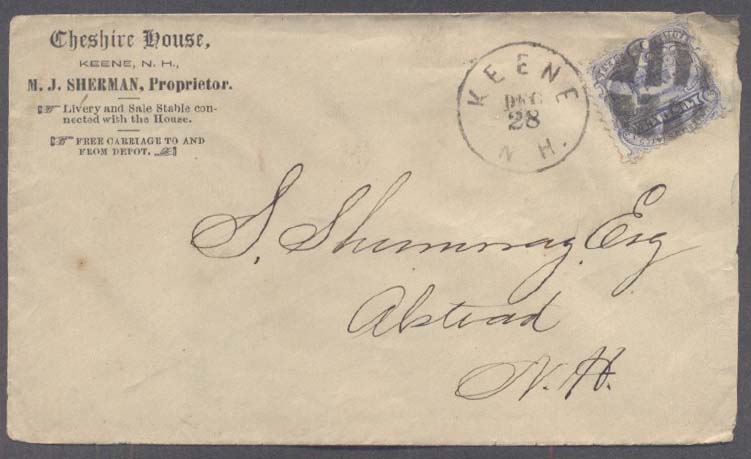 Cheshire House,
KEENE, N. H.,
M. J. SHERMAN, Proprietor.
Livery and Sale Stable con-
nected with the House.
FREE CARRIAGE TO AND
FROM DEPOT.
KEENE
DEC
28
N. H.
S. Shumway, Esq
Alstead
N.H.